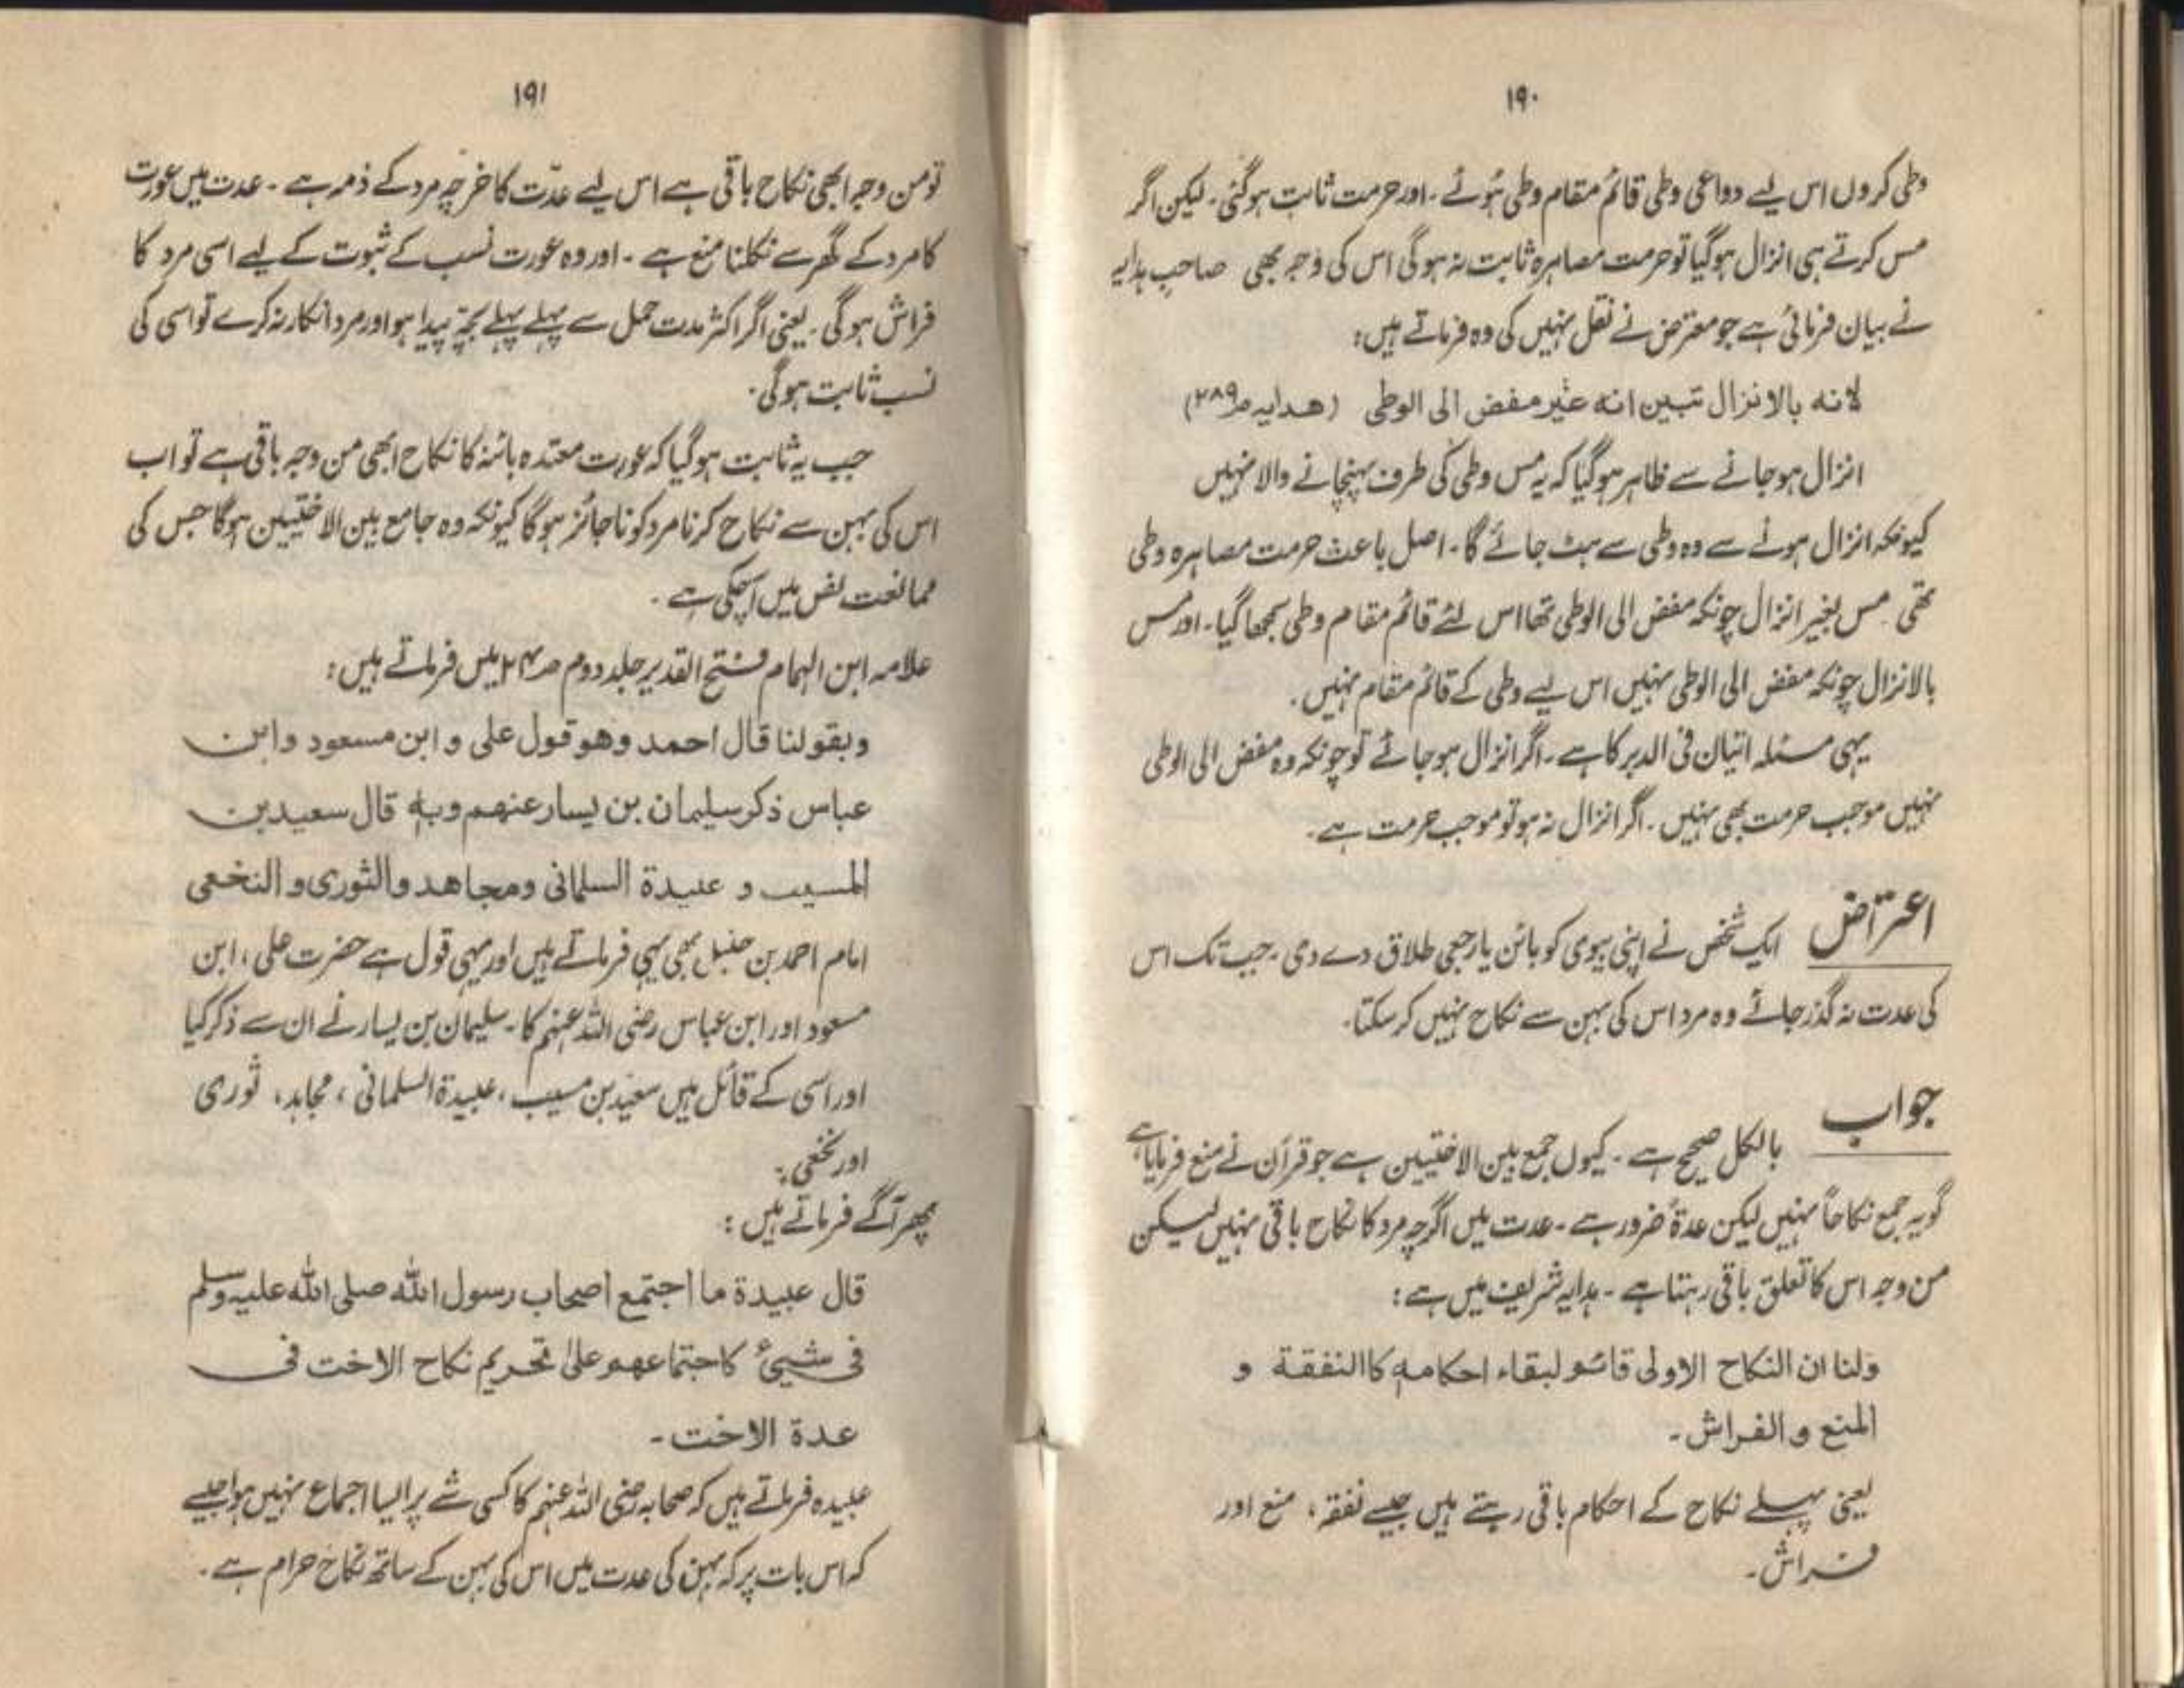 ۱۹۰
وطی کروں اس لیے دواعی وطی قائم مقام وطی ہوئے ۔ اور حرمت ثابت ہوگئی ۔ لیکن اگر
مس کرتے ہی انزال ہوگیا تو حرمت مصاہرہ ثابت نہ ہوگی اس کی وجہ بھی صاحب ہدایہ
نے بیان فرمائی ہے جو معترض نے نقل نہیں کی وہ فرماتے ہیں:
لانه بالانزال تبین انه غیر مفض الی الوطی (هدایه ص۲۸۹)
انزال ہو جانے سے ظاہر ہوگیا کہ یہ مس وطی کی طرف پہنچانے والا نہیں
کیونکہ انزال ہونے سے وہ وطی سے ہٹ جائے گا ۔ اصل باعث حرمت مصاہرہ وطی
تھی مس بغیر انزال چونکہ مفض الی الوطی تھا اس لئے قائم مقام وطی سمجھا گیا ۔ اور مس
بالانزال چونکہ مفض الی الوطی نہیں اس لیے وطی کے قائم مقام نہیں ۔
یہی مسئلہ اتیان فی الدبر کا ہے ۔ اگر انزال ہو جائے تو چونکہ وہ مفض الی الوطی
نہیں موجب حرمت بھی نہیں ۔ اگر انزال نہ ہو تو موجب حرمت ہے ۔
اعتراض ایک شخص نے اپنی بیوی کو بائن یا رجعی طلاق دے دی ۔ جب تک اس
کی عدت نہ گذر جائے وہ مرد اس کی بہن سے نکاح نہیں کر سکتا ۔
جواب بالکل صحیح ہے ۔ کیوں جمع بین الاختیین ہے جو قرآن نے منع فرمایا ہے
گو یہ جمع نکاحاً نہیں لیکن عدۃً ضرور ہے ۔ عدت میں اگرچہ مرد کا نکاح باقی نہیں لیکن
من وجہ اس کا تعلق باقی رہتا ہے ۔ ہدایہ شریف میں ہے :
ولنا ان النکاح الاولی قائم لبقاء احکامه کالنفقة و
المنع و الفراش ۔
یعنی پہلے نکاح کے احکام باقی رہتے ہیں جیسے نفقہ ، منع اور
فراش ۔
۱۹۱
تو من وجہ ابھی نکاح باقی ہے اس لیے عدّت کا خرچہ مرد کے ذمہ ہے ۔ عدت میں عورت
کا مرد کے گھر سے نکلنا منع ہے ۔ اور وہ عورت نسب کے ثبوت کے لیے اسی مرد کا
فراش ہوگی ۔ یعنی اگر اکثر مدت حمل سے پہلے پہلے بچہ پیدا ہو اور مرد انکار نہ کرے تو اسی کی
نسب ثابت ہوگی ۔
جب یہ ثابت ہوگیا کہ عورت معتدہ بائنہ کا نکاح ابھی من وجہ باقی ہے تو اب
اس کی بہن سے نکاح کرنا مرد کو ناجائز ہوگا کیونکہ وہ جامع بین الاختیین ہوگا جس کی
ممانعت نص میں آچکی ہے ۔
علامہ ابن الہمام فتح القدیر جلد دوم میں فرماتے ہیں :
وبقولنا قال احمد وهو قول علی و ابن مسعود وابن
عباس ذکر سلیمان بن یسار عنهم وبه قال سعید بن
المسیب و عبیدة السلمانی ومجاهد والثوری و النخعی
امام احمد بن حنبل بھی یہی فرماتے ہیں اور یہی قول ہے حضرت علی ، ابن
مسعود اور ابن عباس رضی اللہ عنہم کا ۔ سلیمان بن یسار نے ان سے ذکر کیا
اور اسی کے قائل ہیں سعید بن مسیب ، عبیدۃ السلمانی ، مجاہد ، ثوری
اور نخعی ۔
پھر آگے فرماتے ہیں :
قال عبیدة ما اجتمع اصحاب رسول الله صلی الله علیه وسلم
فی شییٔ کاجتماعهم علی تحریم نکاح الاخت فی
عدة الاخت ۔
عبیدہ فرماتے ہیں کہ صحابہ رضی اللہ عنہم کا کسی شے پر ایسا اجماع نہیں ہوا جیسے
کہ اس بات پر کہ بہن کی عدت میں اس کی بہن کے ساتھ نکاح حرام ہے ۔